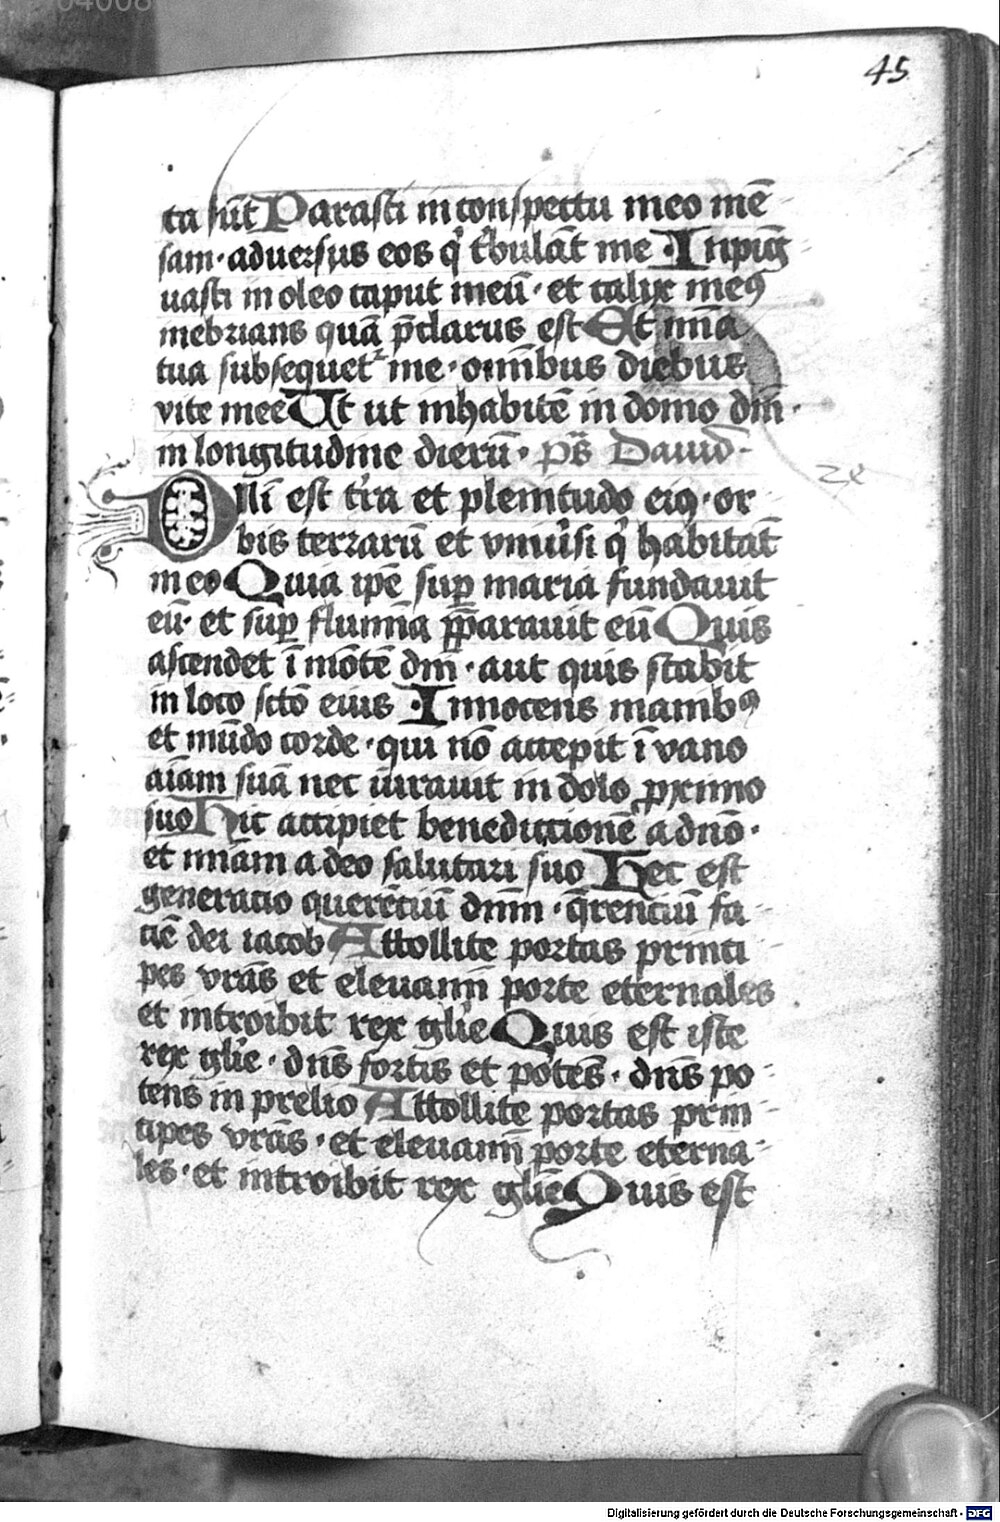 45
ta su̅t Parasti in conspectu meo me̅
sam · aduersus eos qͥ tͥbula̅t me · Inpi̅g
uasti in oleo caput meu̅ · et calix meꝰ
inebrians qua̅ p̅clarus est Et mi̅a
tua subsequetᷣ me · om̅ibus diebus
vite mee Ut ut inhabite̅ in domo dn̅i ·
in longitudine dieru̅ · ps̅ Dauid ·
Dn̅i est tͥra et plenitudo eiꝰ · or
bis terraru̅ et vniuͥsi qͥ habita̅t
in eo Quia ip̅e suꝑ maria fundauit
eu̅ · et suꝑ flumi̅a p̅parauit eu̅ Quis
ascendet i̅ mo̅te̅ dn̅i · aut quis stabit
in loco sc̅to eius · Innocens manibꝰ
et mu̅do corde · qui no̅ accepit i̅ vano
ai̅am sua̅ nec iurauit in dolo ꝓximo
suo Hic accipiet benedictione̅ a dn̅o ·
et mi̅am a deo salutari suo Hec est
generacio quere̅ciu̅ dn̅m · q̅renciu̅ fa
cie̅ dei iacob Attollite portas princi
pes vr̅as et eleuami̅ porte eternales
et introibit rex glͥe Quis est iste
rex glͥe · dn̅s fortis et pote̅s · dn̅s po
tens in prelio Attollite portas prin
cipes vr̅as · et eleuami̅ porte eterna
les · et introibit rex gli̅e Quis est
Digitalisierung gefördert durch die Deutsche Forschungsgemeinschaft - DFG